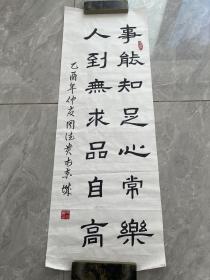 事能知足心常樂
人到無求品自高
乙酉年仲夏周法貴書